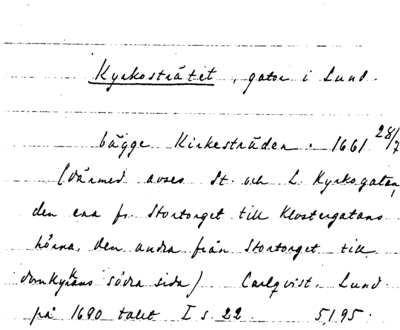 Kyrkosträtet, gator i Lund.
bägge Kirkesträden. 1661 28/7
(därmed avses St. och L. Kyrkogatan,
den ena fr. Stortorget till Klostergatans
hörna, den andra från Stortorget till
domkyrkans södra sida) Carlqvist. Lund
på 1690 talet I s. 22. 5,195.